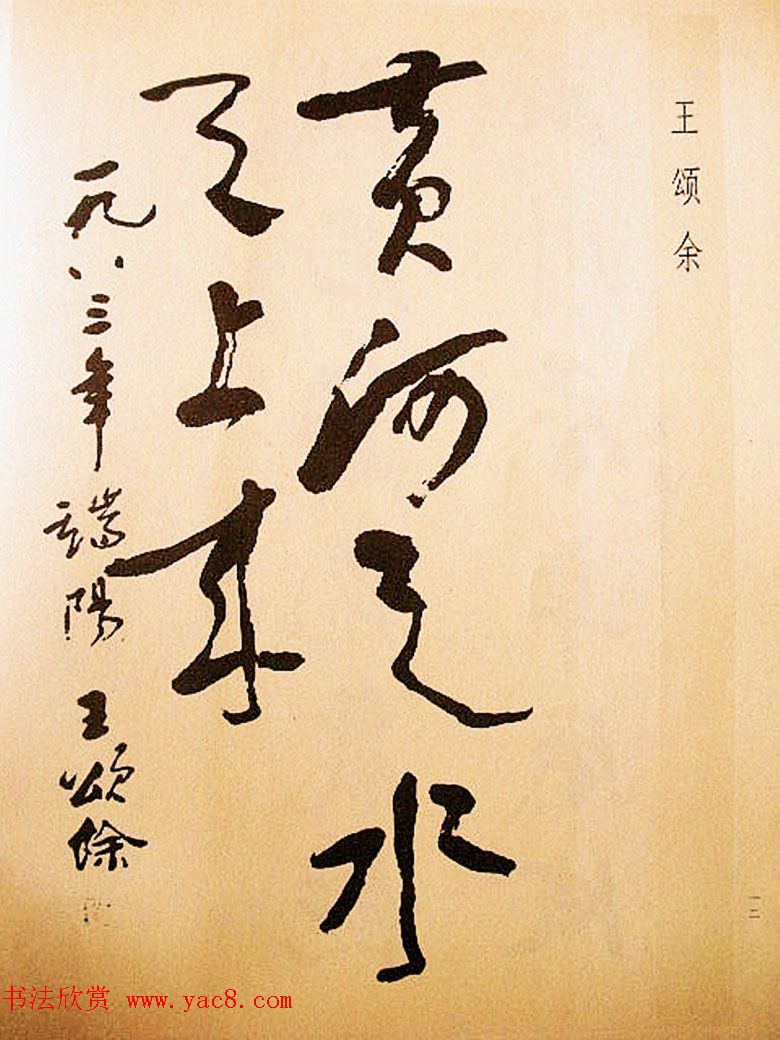 王颂余
黄河之水
天上来
一九八三年端陽王頌餘
一二
书法欣赏 www.yac8.com